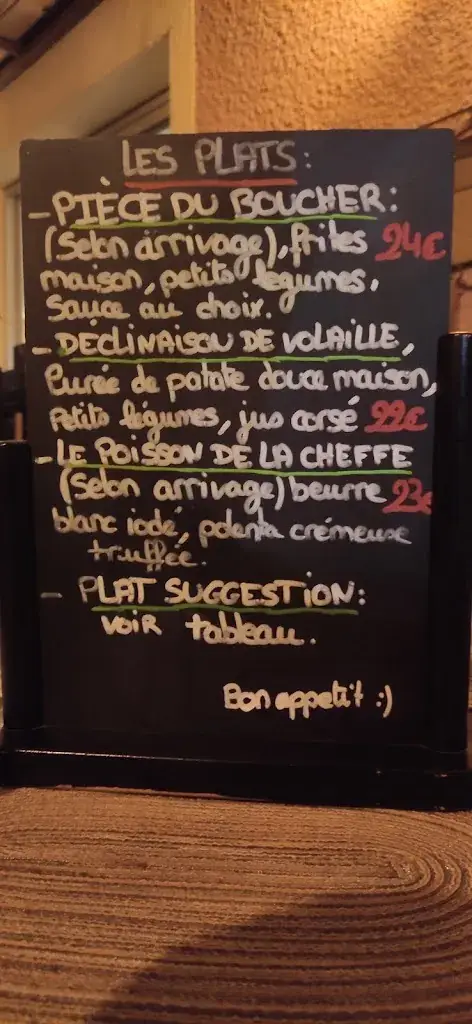 LES PLATS:
- PIÈCE DU BOUCHER:
(Selon arrivage), frites 24€
maison, petits légumes,
Sauce au choix.
- DÉCLINAISON DE VOLAILLE,
Purée de patate douce maison,
Petits légumes, jus corsé 22€
- LE POISSON DE LA CHEFFE
(Selon arrivage) beurre 23€
blanc iodé, polenta crémeuse
truffée.
- PLAT SUGGESTION:
VOIR tableau.
Bon appetit :)